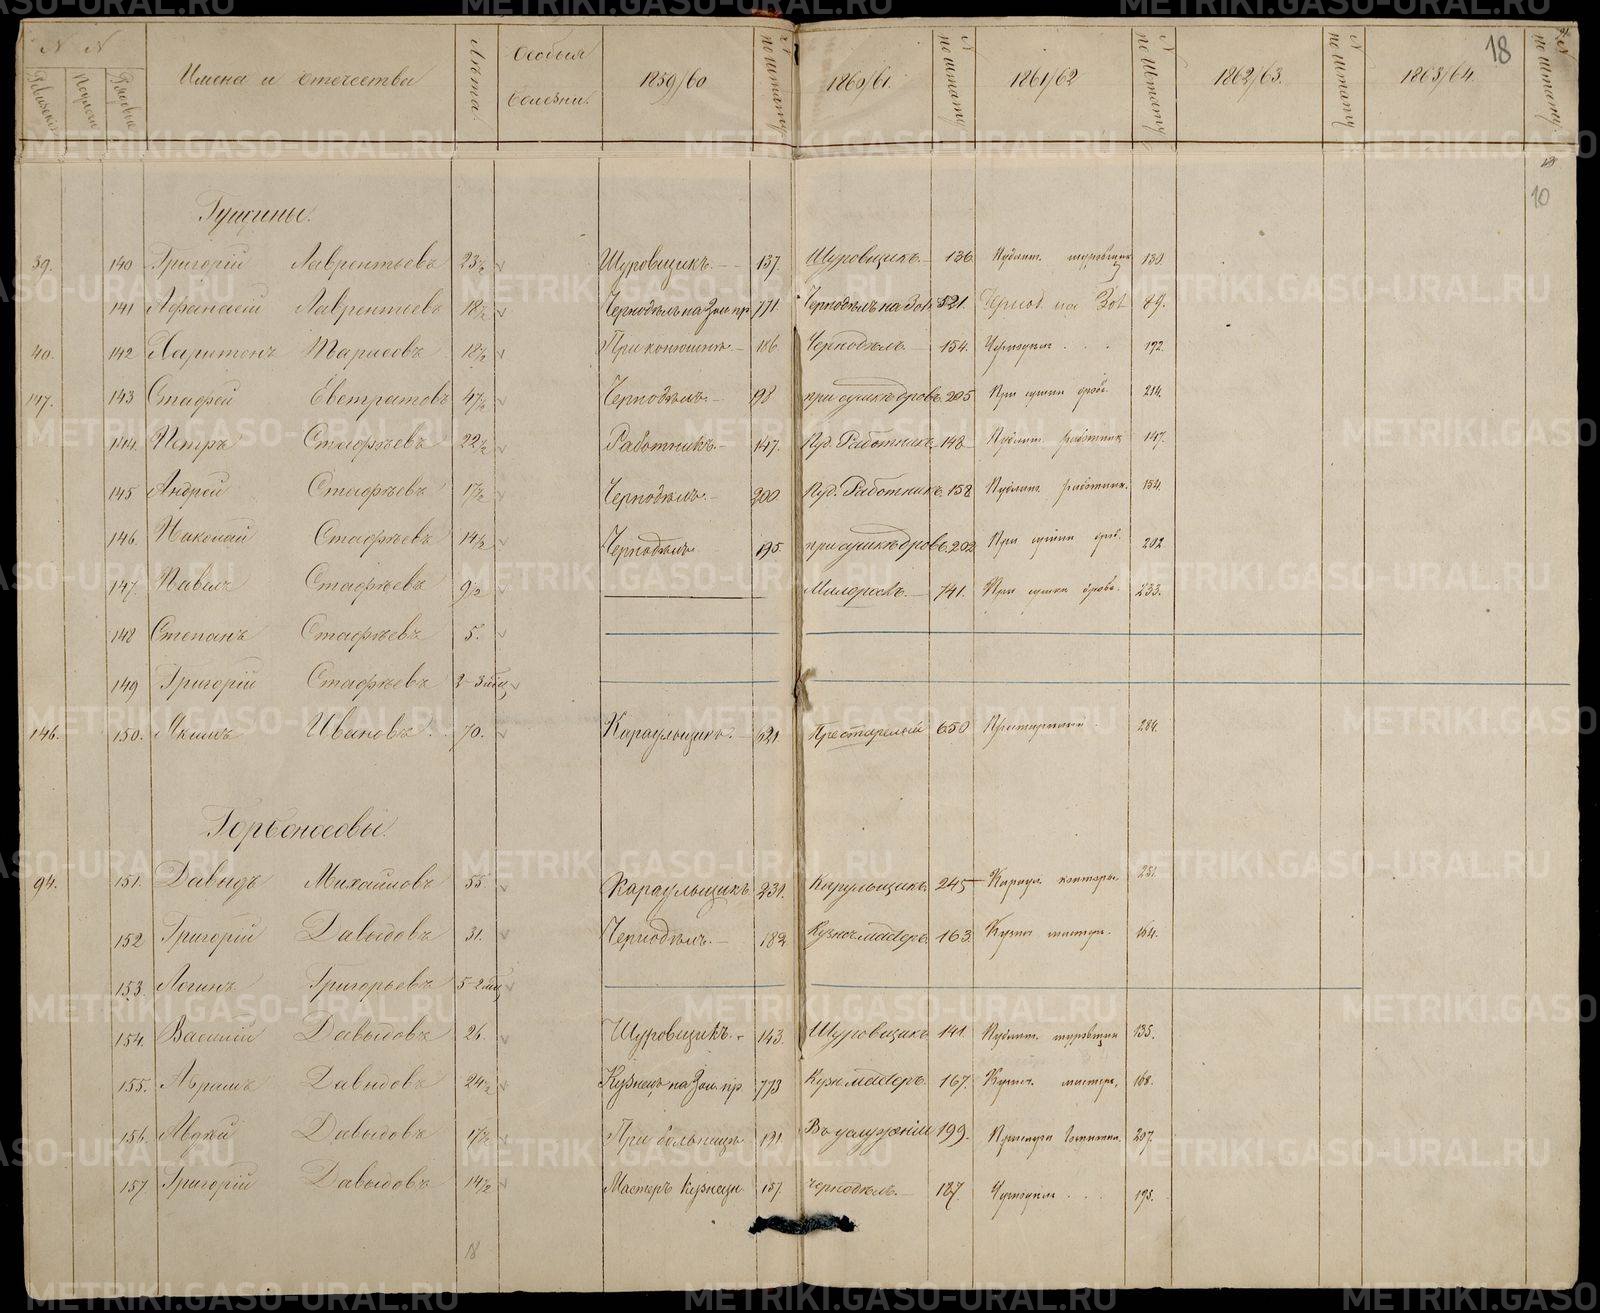 18
N N Имена и отчества Лѣта. Особыя болезни. 1859/60 N по штату 1860/61. N по штату 1861/62 N по штату 1862/63. N по штату 1863/64. N по штату.
10
Гущины.
39. 140 Григорій Лаврентьевъ 23½ Шуровщикъ. 137. Шуровщикъ 136 Пудлинг. шуровщик 130
141 Афанасій Лаврентьевъ 18½ Чернодѣлъ на Зол. пр. 771. Чернодѣлъ на Зол. 521. Чернод на Зол 49.
40. 142 Харитонъ Тарасовъ 18½ При конюшнѣ 186 Чернодѣлъ. 154. Чернодѣл 192.
147. 143 Стафей Евстратовъ 47½ Чернодѣлъ. 198 при сушкѣ дровъ 205 При сушки дров. 214.
144. Петръ Стафѣевъ 22½ Работникъ. 147. Пуд. Работникъ 148 Пудлинг. работник 147.
145 Андрей Стафѣевъ 17½ Чернодѣлъ. 200 Пуд. Работникъ 158 Пудлинг. работник. 154.
146. Николай Стафѣевъ 14½ Чернодѣлъ 195. при сушкѣ дровъ 202 При сушки дров. 202
147. Павелъ Стафѣевъ 9½ Малоросл. 741. При сушки дровъ. 233.
148 Степанъ Стафѣевъ 5.
149 Григорій Стафѣевъ 2-3 мѣс
146. 150. Акимъ Ивановъ. 70. Караульщикъ. 621 Престарелый 650 Престарелый 284.
Горбоносовы.
94. 151. Давыдъ Михайловъ 55 Караульщикъ 231. Караульщикъ 245 Караул. конторы 251.
152 Григорій Давыдовъ 31. Чернодѣлъ. 182 Кузнеч. мастеръ. 163. Кузнеч мастеръ. 164.
153. Логинъ Григорьевъ 5-2 мѣс
154. Василій Давыдовъ 26. Шуровщикъ. 143. Шуровщикъ 141 Пудлинг. шуровщик 135.
155. Абрамъ Давыдовъ 24½ Кузнецъ на Зол. пр. 773 Кузн. мастеръ. 167. Кузнеч. мастеръ, 168.
156. Авдей Давыдовъ 17½ При больницѣ 191. Въ услуженіи 199. Прислуга 207.
157 Григорій Давыдовъ 14½ Мастеръ Кузнецн 157. Чернодѣлъ. 187. Чернодѣл 195.
18